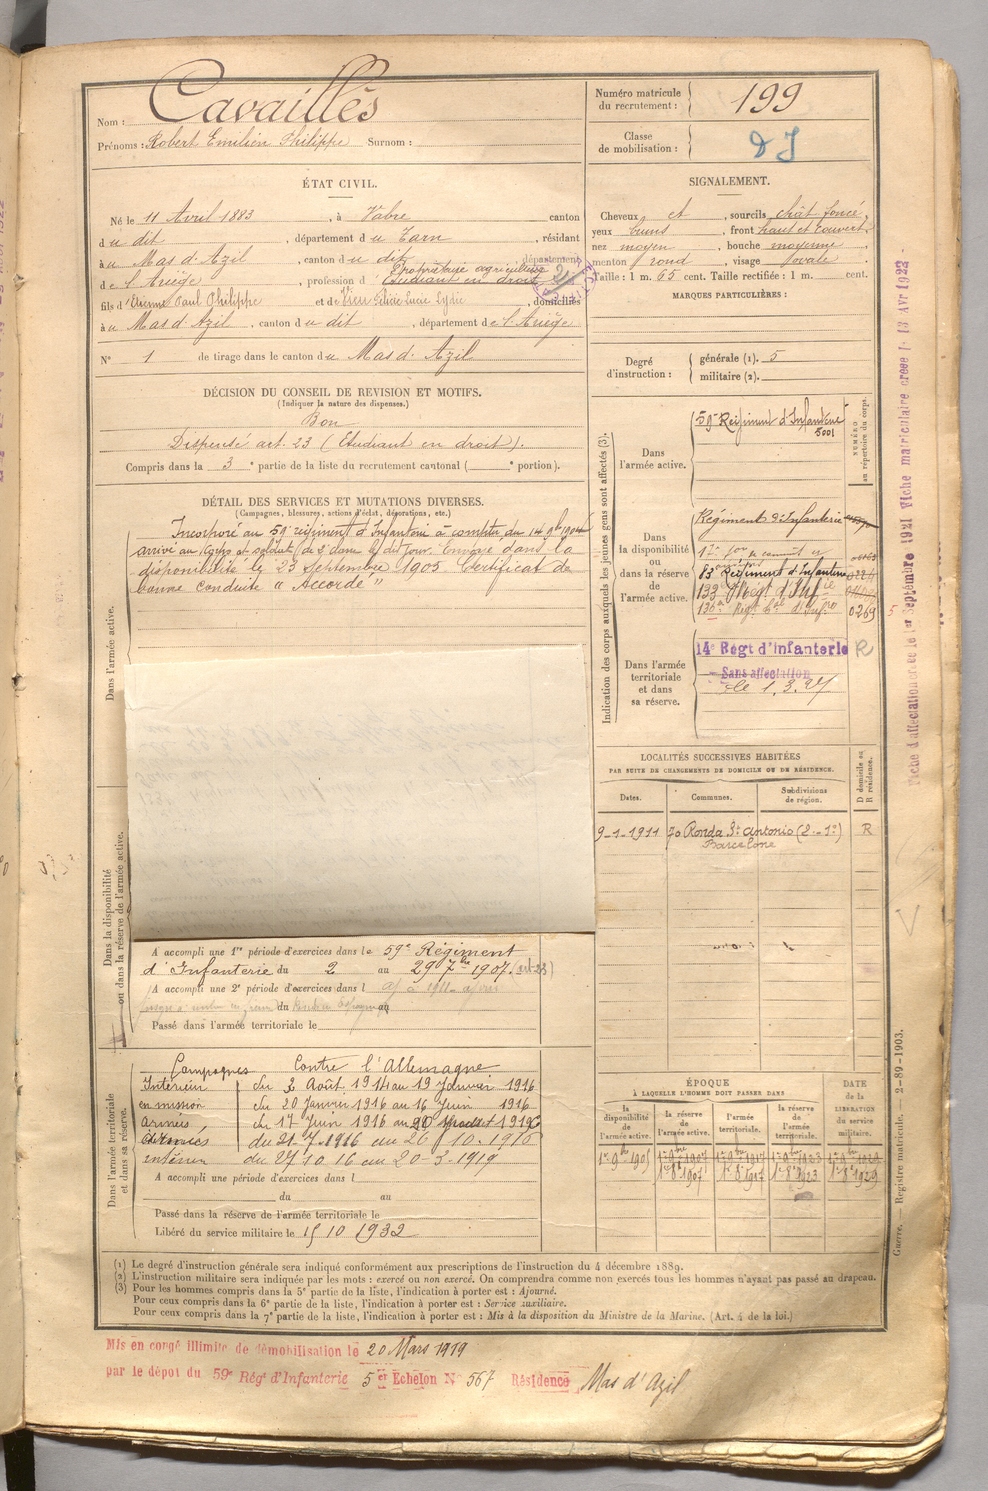 Nom : Cavaillès
Prénoms : Robert Emilien Philippe Surnom :
Numéro matricule du recrutement : 199
Classe de mobilisation : DJ
ÉTAT CIVIL.
Né le 11 Avril 1883, à Vabre canton
du dit, département du Tarn, résidant
à u Mas d'Azil, canton du dit, département
de l'Ariège, profession d Propriétaire agriculteur
Etudiant en droit
fils d'Etienne Paul Philippe et de Lucie Lydie, domiciliés
à u Mas d'Azil, canton du dit, département de l'Ariège
N° 1 de tirage dans le canton du Mas d'Azil
SIGNALEMENT.
Cheveux ct, sourcils chât foncé,
yeux bruns, front haut et couvert,
nez moyen, bouche moyenne
menton rond, visage ovale
Taille : 1 m. 65 cent. Taille rectifiée : 1 m. cent.
MARQUES PARTICULIÈRES :
Degré d'instruction : générale (1). 5
militaire (2).
DÉCISION DU CONSEIL DE REVISION ET MOTIFS.
(Indiquer la nature des dispenses.)
Bon
Dispensé art. 23 (Etudiant en droit).
Compris dans la 3e partie de la liste du recrutement cantonal ( e portion).
DÉTAIL DES SERVICES ET MUTATIONS DIVERSES.
(Campagnes, blessures, actions d'éclat, décorations, etc.)
Incorporé au 59e régiment d'Infanterie à compter du 14 9bre 1904
arrivé au Corps et soldat de 2e classe le dit jour. Envoyé dans la
disponibilité le 23 Septembre 1905 Certificat de
bonne conduite "Accordé"
Dans l'armée active.
Dans la disponibilité ou dans la réserve de l'armée active.
A accompli une 1re période d'exercices dans le 59e Régiment
d'Infanterie du 2 au 29 7bre 1907. (art. 23)
A accompli une 2e période d'exercices dans l
du au
Passé dans l'armée territoriale le
Dans l'armée territoriale et dans sa réserve.
Campagnes Contre l'Allemagne
Intérieur du 3 Août 1914 au 19 Janvier 1916
en mission du 20 Janvier 1916 au 16 Juin 1916
armées du 17 Juin 1916 au 20
Armées du 21-7-1916 au 26/10-1916
intérieur du 27 10 16 au 20-3-1919
A accompli une période d'exercices dans l
du au
Passé dans la réserve de l'armée territoriale le
Libéré du service militaire le 15 10 1932
Indication des corps auxquels les jeunes gens sont affectés (3).
NUMÉRO au répertoire du corps.
Dans l'armée active. 59e Régiment d'Infanterie
5001
Dans la disponibilité ou dans la réserve de l'armée active.
Régiment d'Infanterie
83e Régiment d'Infanterie
133e Régt d'Infie
136e Régt d'Infie 0269
Dans l'armée territoriale et dans sa réserve.
14e Régt d'Infanterie R
Sans affectation
le 1.3.27
LOCALITÉS SUCCESSIVES HABITÉES
PAR SUITE DE CHANGEMENTS DE DOMICILE OU DE RÉSIDENCE.
D domicile ou R résidence.
Dates. Communes. Subdivisions de région.
9-1-1911 70 Ronda St Antonio (2.-1a) R
Barcelone
ÉPOQUE
À LAQUELLE L'HOMME DOIT PASSER DANS
DATE de la LIBÉRATION du service militaire.
la disponibilité de l'armée active. la réserve de l'armée active. l'armée territoriale. la réserve de l'armée territoriale.
1er 9bre 1905 1er 9bre 1907 1er 9bre 1917 1er 9bre 1923 1er 9bre 1929
1er 8bre 1907 1er 8bre 1917 1er 8bre 1923 1er 8bre 1929
(1) Le degré d'instruction générale sera indiqué conformément aux prescriptions de l'instruction du 4 décembre 1889.
(2) L'instruction militaire sera indiquée par les mots : exercé ou non exercé. On comprendra comme non exercés tous les hommes n'ayant pas passé au drapeau.
(3) Pour les hommes compris dans la 5e partie de la liste, l'indication à porter est : Ajourné.
Pour ceux compris dans la 6e partie de la liste, l'indication à porter est : Service auxiliaire.
Pour ceux compris dans la 7e partie de la liste, l'indication à porter est : Mis à la disposition du Ministre de la Marine. (Art. 4 de la loi.)
Mis en congé illimité de démobilisation le 20 Mars 1919
par le dépôt du 59e Régt d'Infanterie 5 et Echelon N° 567 Résidence Mas d'Azil
Fiche d'affectation créée le 1er Septembre 1921 Fiche matriculaire créée le 13 Avr 1922
Guerre. — Registre matricule. — 2-89-1903.